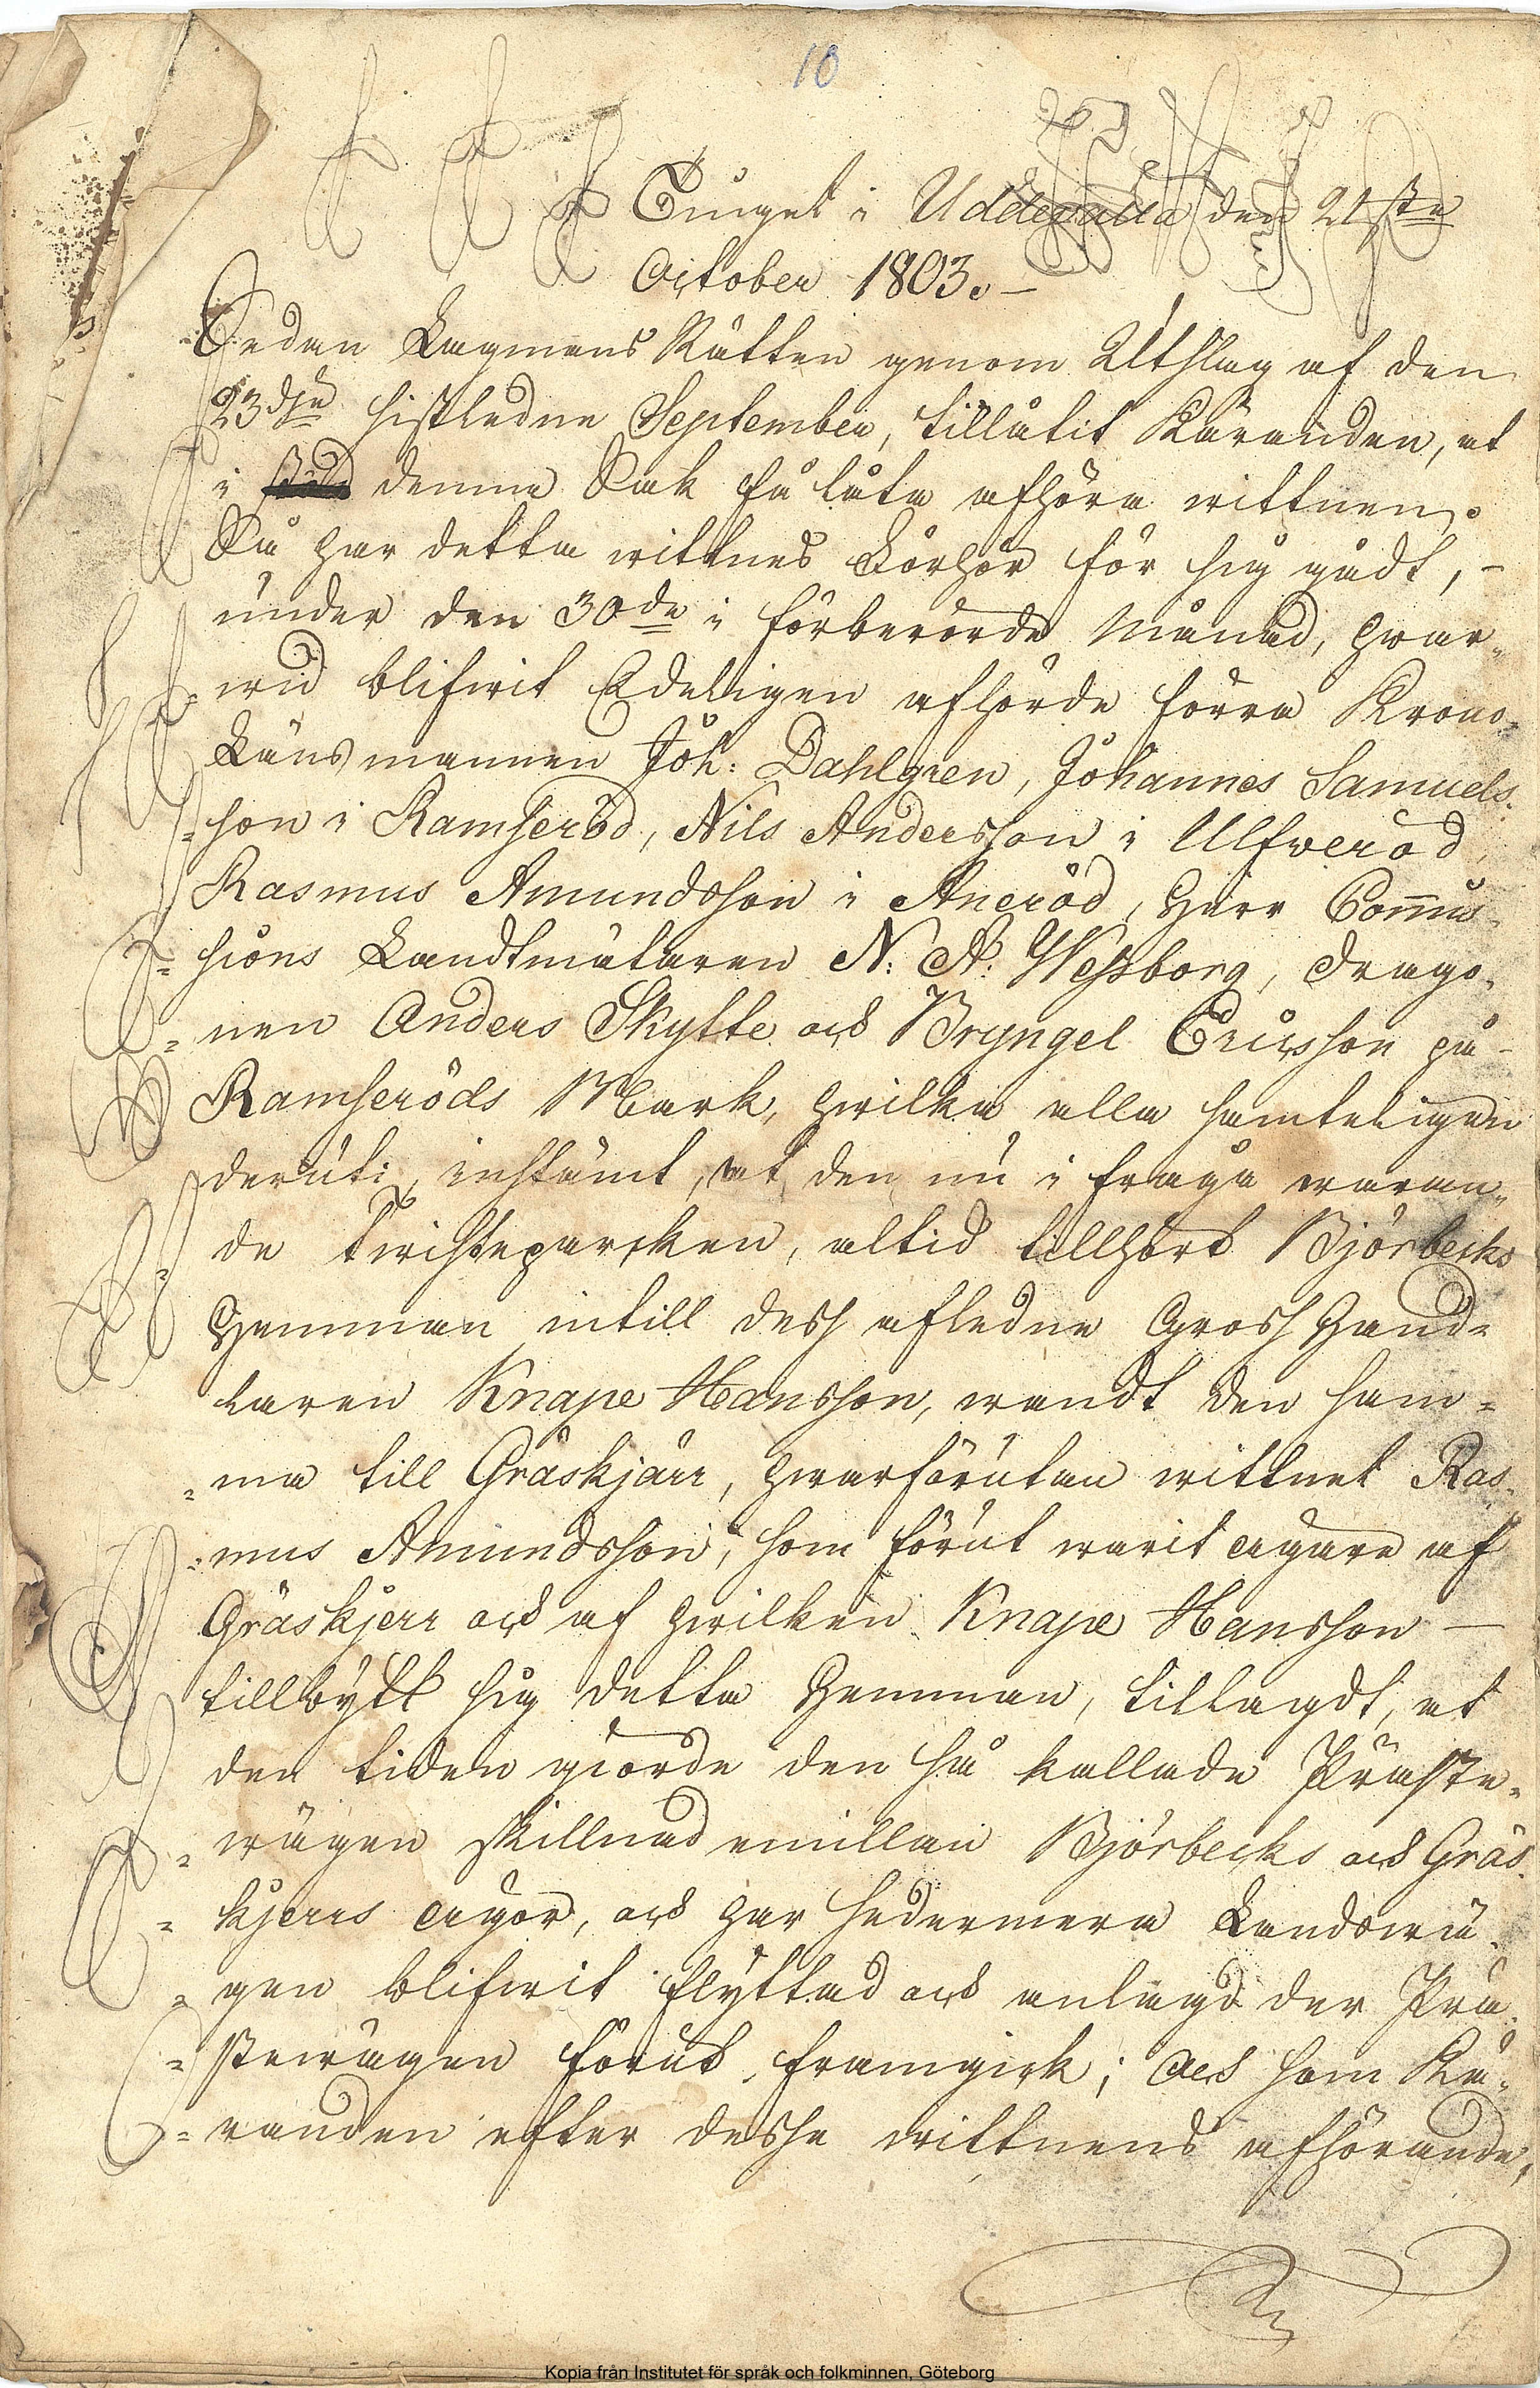 10
Tinget i Uddevalla den 21ste
October 1803.
Sedan Lagmans Rätten genom Uthslag af den
23dje sistledne September, tillåtit Käranden, at
i denna Sak få låta afhöra wittnen.
Så har detta wittnes Förhör för sig gådt,
under den 30de i förberörde Månad, hwar-
wid blifwit Edeligen afhörde förra Krono-
Länsmannen Joh: Dahlgren, Johannes Samuels-
son i Ramseröd, Nils Andersson i Ulfweröd,
Rasmus Amundsson i Aneröd, Herr Commis-
sions Landtmätaren N: A: Wessborg, Drago-
nen Anders Skytte och Bryngel Ericsson på
Ramseröds Mark, hwilka alla samteligen
deruti instämt, at den nu i fråga waran-
de twisteparcken, altid tillhört Björbecks
Hemman intill dess afledne Gross Hand-
laren Knape Hansson, wandt den sam-
ma till Gräskjärr, hwarförutan wittnet Ras-
mus Amundsson, som förut warit ägare af
Gräskjerr och af hwilken Knape Hansson
tillbytt sig detta Hemman, tillagdt, at
den tiden giorde den så kallade Präste-
wägen skillnad emillan Björbecks och Gräs-
kjerrs ägor, och har sedermera Landswä-
gen blifwit flyttad och anlagd der Prä-
stewägen förut framgick; Och som Kä-
randen efter dessa wittnens afhörande,
Kopia från Institutet för språk och folkminnen, Göteborg